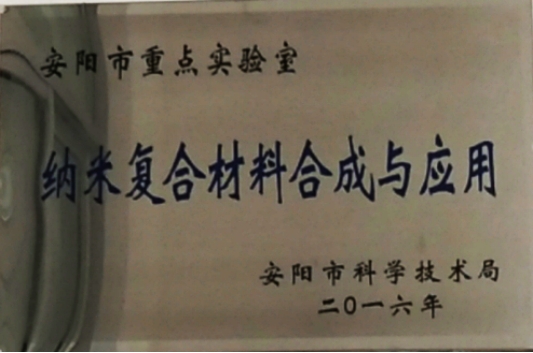 安阳市重点实验室
纳米复合材料合成与应用
安阳市科学技术局
二〇一六年